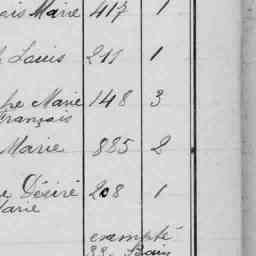 Marie 417 1
Louis 211 1
Marie 148 3
François
Marie 885 2
Désiré 208 1
Marie
exempté
33